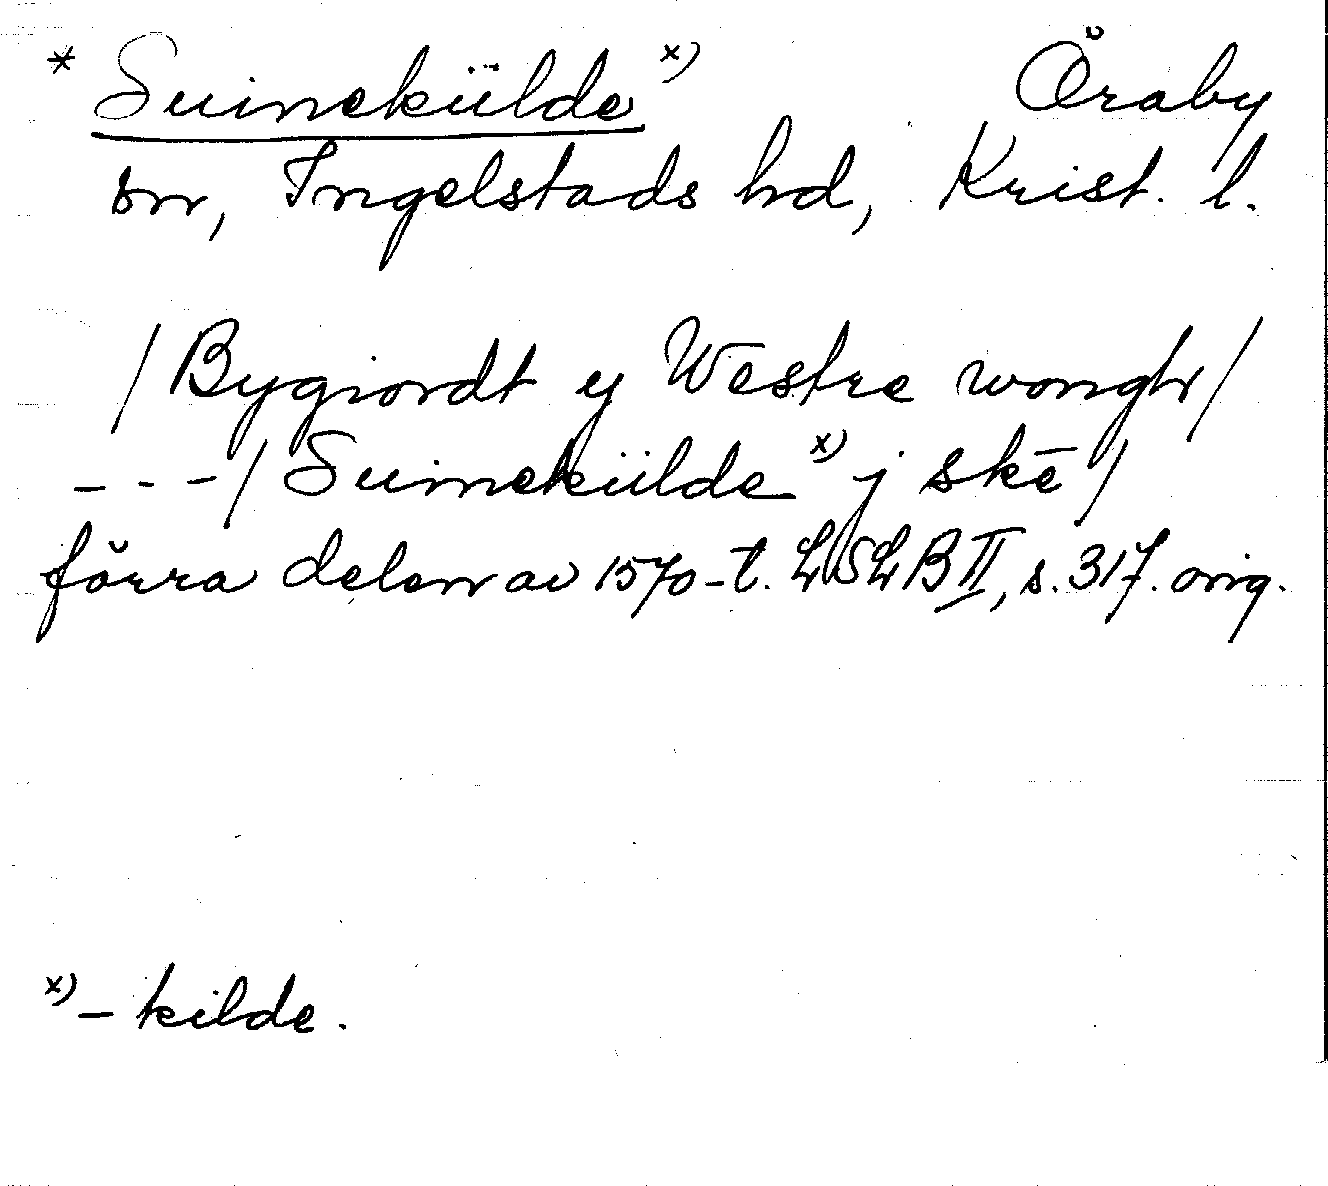 * Suinekülde x) Öraby
sn, Ingelstads hd, Krist. l.
/Bygiordt y Westre wongh/
---/ Suinekülde x) j skē/
förra delen av 1570-t. LSLB II, s. 317. orig.
x) - kilde.